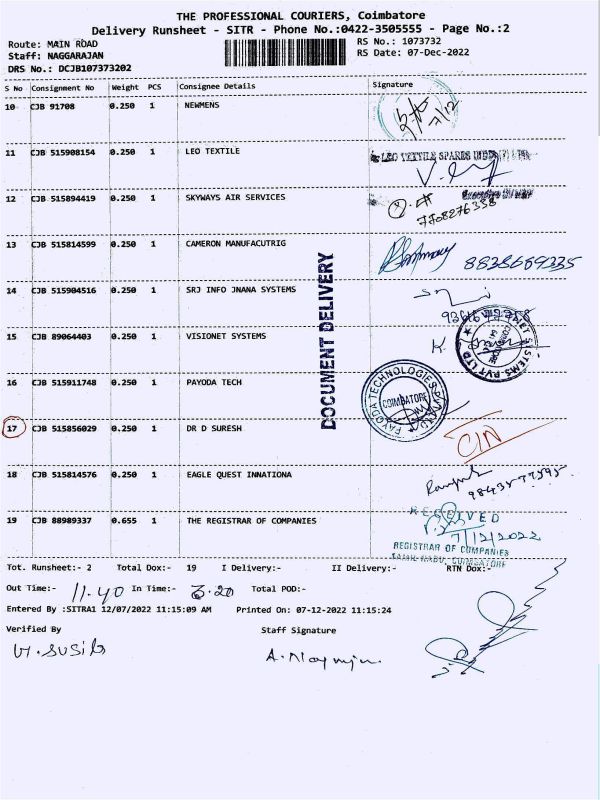 THE PROFESSIONAL COURIERS, Coimbatore
Delivery Runsheet - SITR - Phone No.:0422-3505555 - Page No.:2
Route: MAIN ROAD RS No.: 1073732
Staff: NAGGARAJAN RS Date: 07-Dec-2022
DRS No.: DCJB107373202
S No Consignment No Weight PCS Consignee Details Signature
10 CJB 91708 0.250 1 NEWMENS
7/12
11 CJB 515908154 0.250 1 LEO TEXTILE
LEO TEXTILE SPARES
12 CJB 515894419 0.250 1 SKYWAYS AIR SERVICES
7708276358
13 CJB 515814599 0.250 1 CAMERON MANUFACUTRIG
8838669335
14 CJB 515904516 0.250 1 SRJ INFO JNANA SYSTEMS
DOCUMENT DELIVERY
15 CJB 89064403 0.250 1 VISIONET SYSTEMS
SYSTEMS PVT LTD
16 CJB 515911748 0.250 1 PAYODA TECH
PAYODA TECHNOLOGIES
COIMBATORE
17 CJB 515856029 0.250 1 DR D SURESH
C/N
18 CJB 515814576 0.250 1 EAGLE QUEST INNATIONA
19 CJB 88989337 0.655 1 THE REGISTRAR OF COMPANIES
RECEIVED
7/12/2022
REGISTRAR OF COMPANIES
TAMIL NADU, COIMBATORE
Tot. Runsheet:- 2 Total Dox:- 19 I Delivery:- II Delivery:- RTN Dox:-
Out Time:- 11.40 In Time:- 3.20 Total POD:-
Entered By :SITRA1 12/07/2022 11:15:09 AM Printed On: 07-12-2022 11:15:24
Verified By Staff Signature